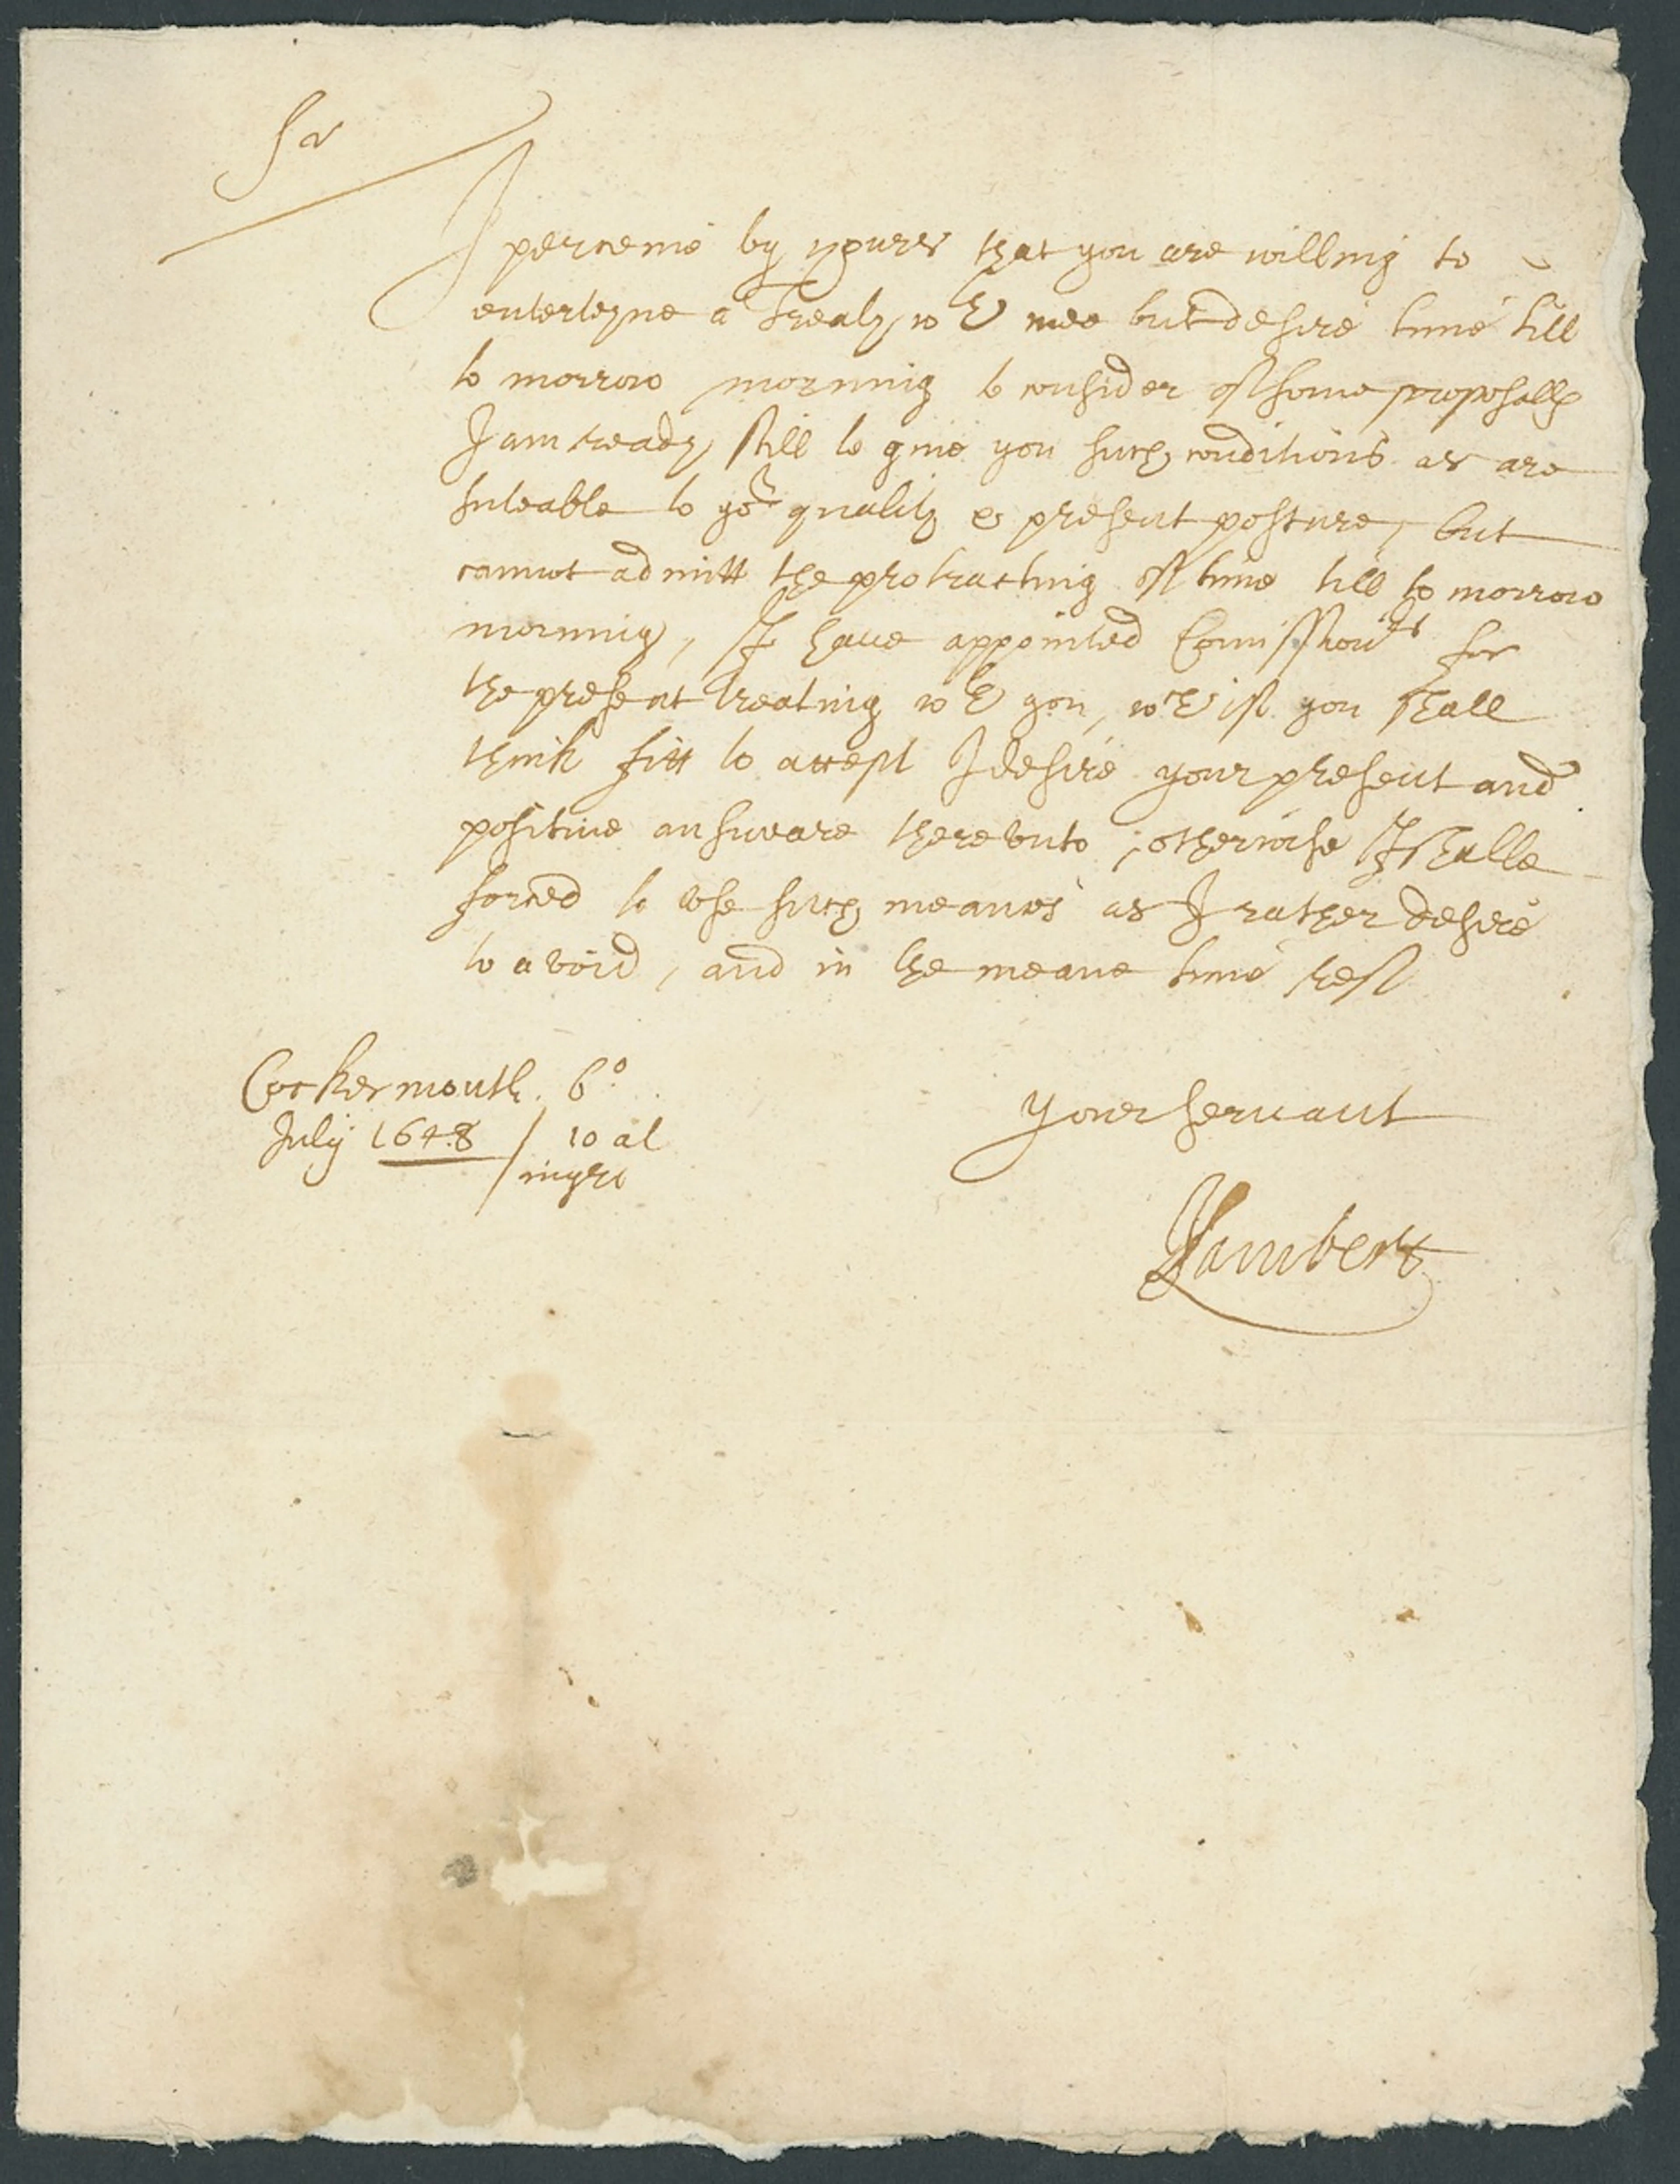 Sr
I perceiue by yours that you are willing to
enterteyne a Treaty wth mee but desire time till
to morrow morning to consider of some proposalls
I am ready still to giue you such conditions as are
suteable to yor quality & present posture, but
cannot admitt the protracting of time till to morrow
morning, I haue appointed Comissionrs for
the present treating wth you, wch if you shall
think fitt to accept I desire your present and
positiue answeare therevnto; otherwise I shalbe
forced to vse such meanes as I rather desire
to avoid, and in the meane time rest
Cockermouth. 6o
July 1648 / 10 at
night
Your servant
JLambert